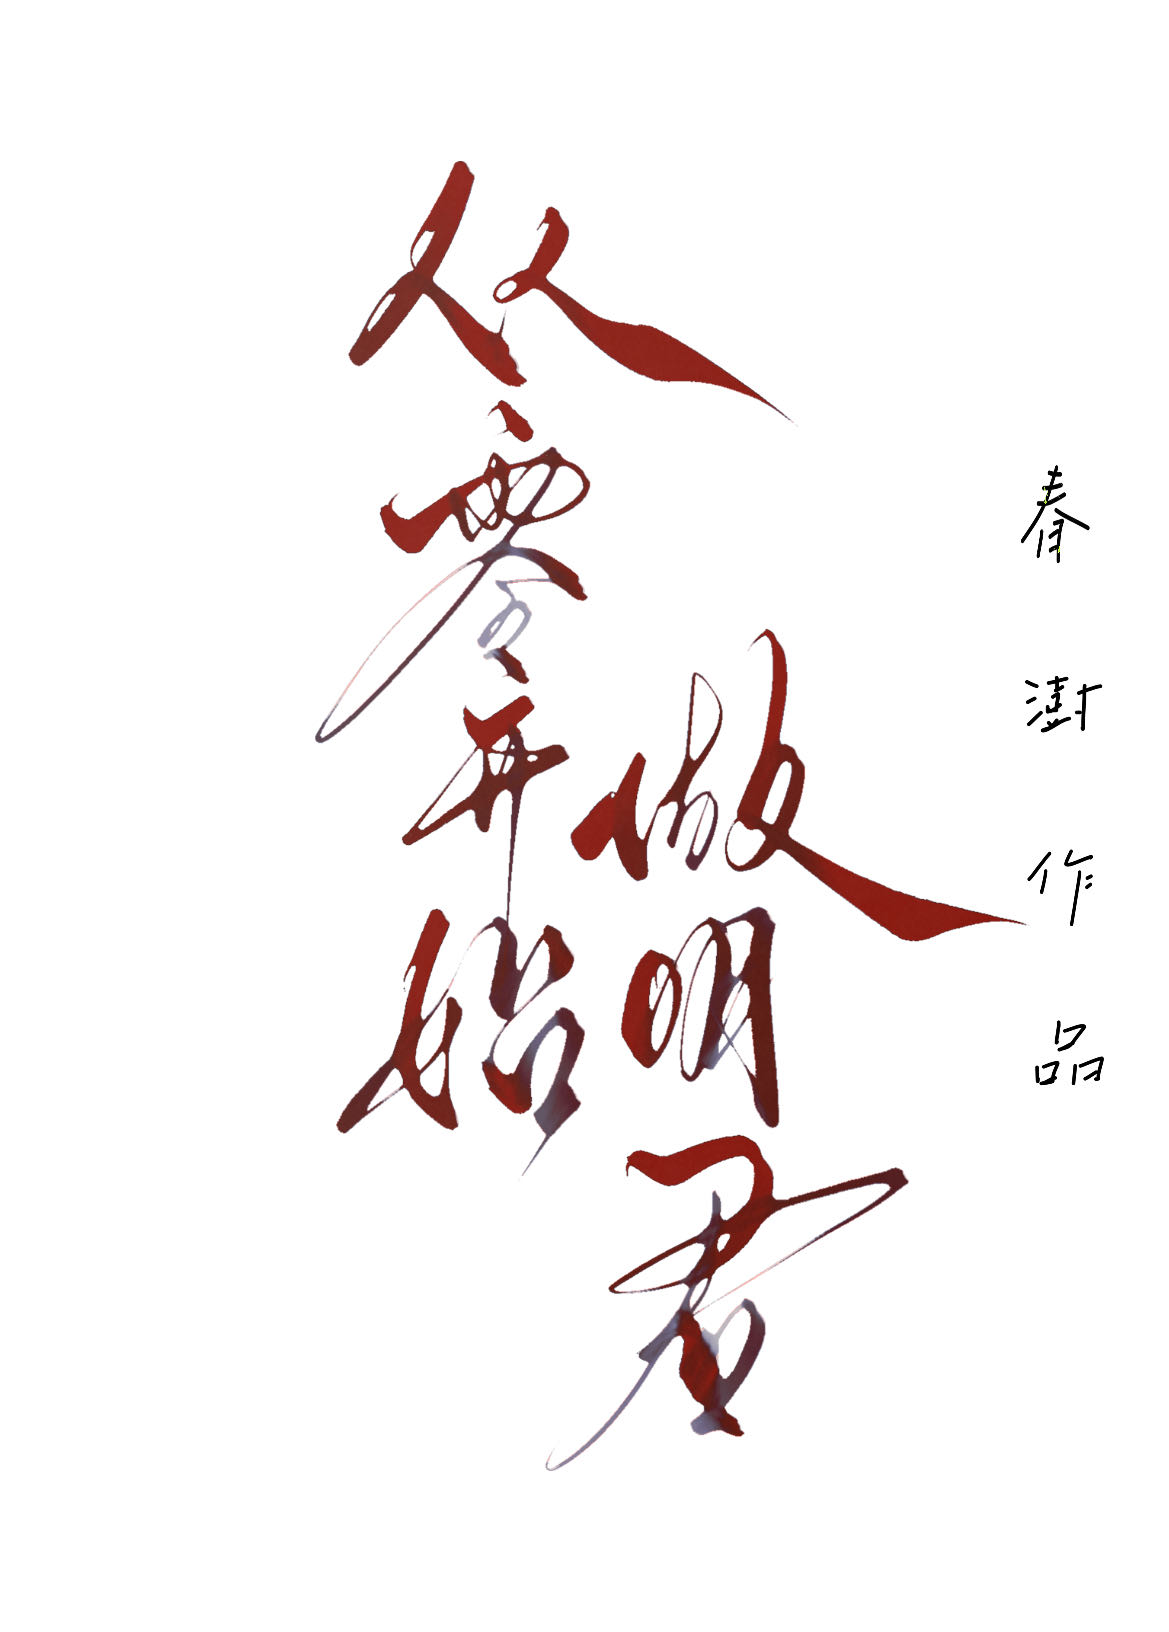 从零开始
做明君
春澍作品